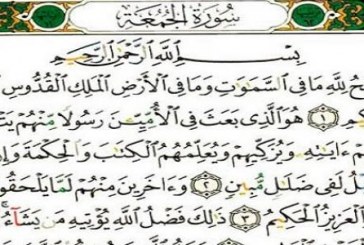 سُورَةُ الجُمُعَةِ
بِسْمِ اللَّهِ الرَّحْمَٰنِ الرَّحِيمِ
لِلَّهِ مَا فِي السَّمَٰوَٰتِ وَمَا فِي الْأَرْضِ الْمَلِكِ الْقُدُّوسِ
١ هُوَ الَّذِي بَعَثَ فِي الْأُمِّيِّـۧنَ رَسُولًا مِّنْهُمْ
ءَايَٰتِهِۦ وَيُزَكِّيهِمْ وَيُعَلِّمُهُمُ الْكِتَٰبَ وَالْحِكْمَةَ
لَفِي ضَلَٰلٍ مُّبِينٍ ٢ وَءَاخَرِينَ مِنْهُمْ لَمَّا يَلْحَقُوا
الْعَزِيزُ الْحَكِيمُ ٣ ذَٰلِكَ فَضْلُ اللَّهِ يُؤْتِيهِ مَن يَشَآءُ